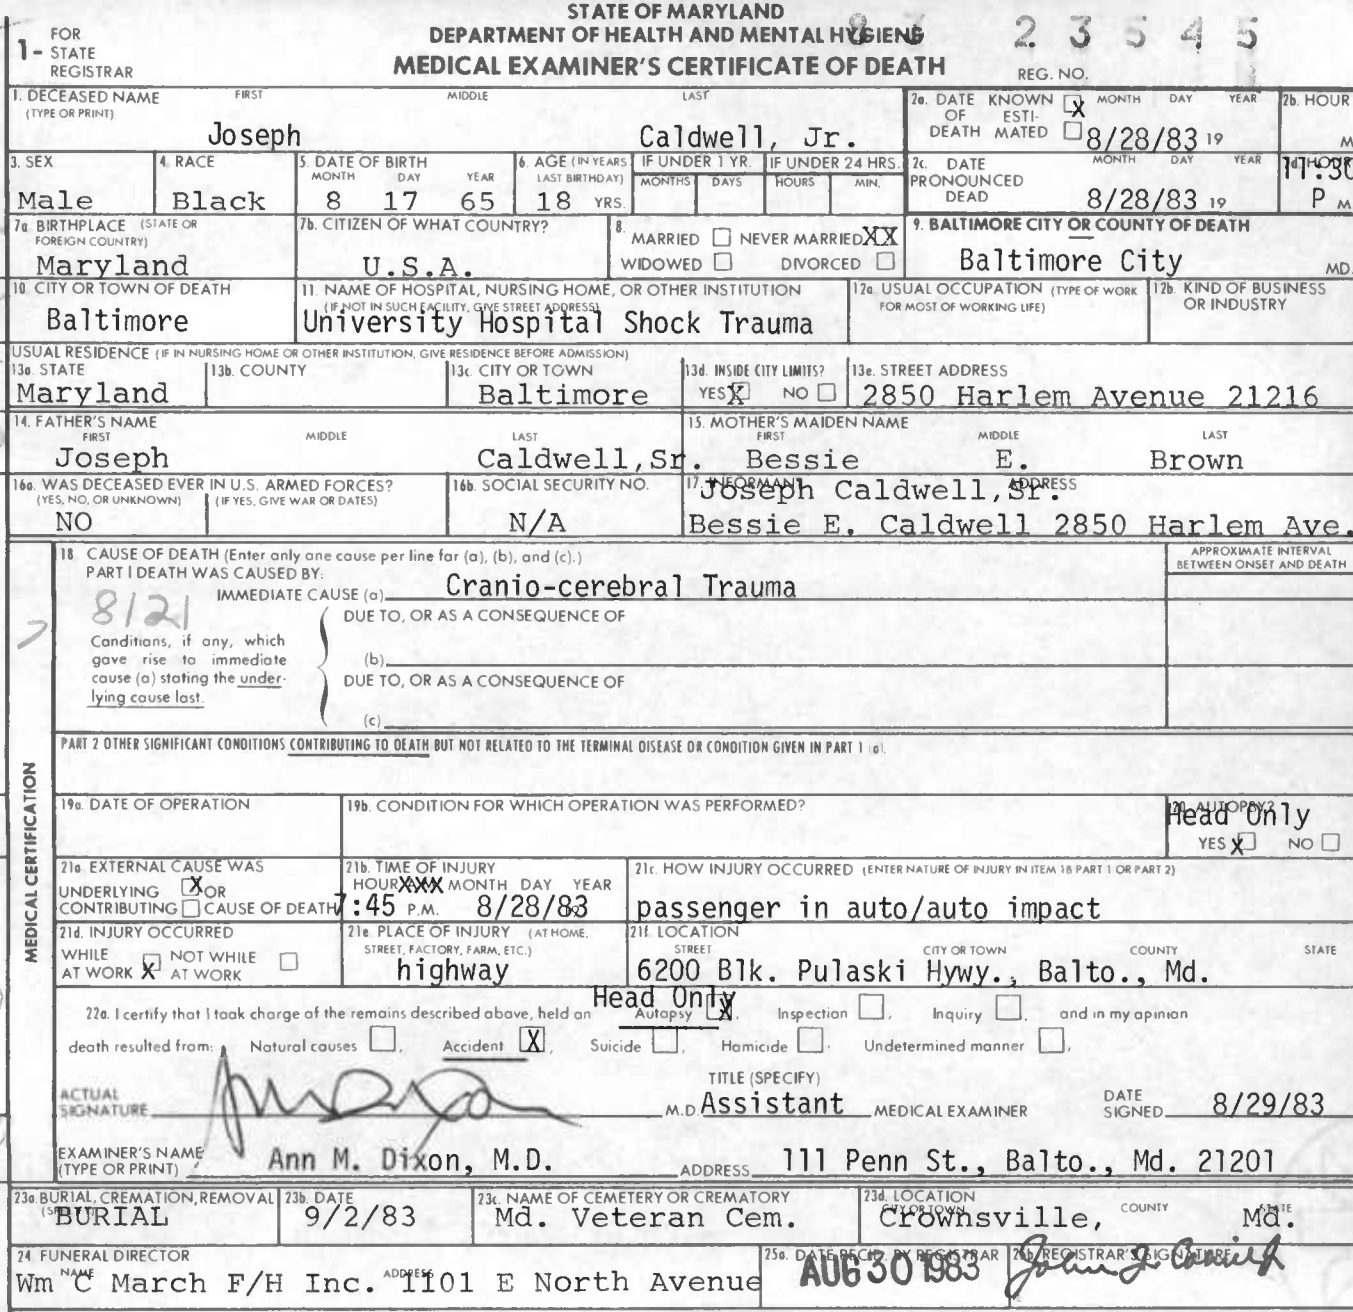 STATE OF MARYLAND
DEPARTMENT OF HEALTH AND MENTAL HYGIENE
MEDICAL EXAMINER'S CERTIFICATE OF DEATH
1- FOR STATE REGISTRAR
83 23545
REG. NO.
1. DECEASED NAME (TYPE OR PRINT) FIRST MIDDLE LAST
Joseph Caldwell, Jr.
2a. DATE OF DEATH KNOWN X ESTIMATED MONTH DAY YEAR
8/28/83 19
2b. HOUR M
3. SEX
Male
4. RACE
Black
5. DATE OF BIRTH MONTH DAY YEAR
8 17 65
6. AGE (IN YEARS LAST BIRTHDAY)
18 YRS.
IF UNDER 1 YR. MONTHS DAYS
IF UNDER 24 HRS. HOURS MIN.
2c. DATE PRONOUNCED DEAD MONTH DAY YEAR
8/28/83 19
2d. HOUR
11:30 P M
7a. BIRTHPLACE (STATE OR FOREIGN COUNTRY)
Maryland
7b. CITIZEN OF WHAT COUNTRY?
U.S.A.
8. MARRIED NEVER MARRIED XX
WIDOWED DIVORCED
9. BALTIMORE CITY OR COUNTY OF DEATH
Baltimore City MD.
10. CITY OR TOWN OF DEATH
Baltimore
11. NAME OF HOSPITAL, NURSING HOME, OR OTHER INSTITUTION
(IF NOT IN SUCH FACILITY, GIVE STREET ADDRESS)
University Hospital Shock Trauma
12a. USUAL OCCUPATION (TYPE OF WORK FOR MOST OF WORKING LIFE)
12b. KIND OF BUSINESS OR INDUSTRY
USUAL RESIDENCE (IF IN NURSING HOME OR OTHER INSTITUTION, GIVE RESIDENCE BEFORE ADMISSION)
13a. STATE
Maryland
13b. COUNTY
13c. CITY OR TOWN
Baltimore
13d. INSIDE CITY LIMITS?
YES X NO
13e. STREET ADDRESS
2850 Harlem Avenue 21216
14. FATHER'S NAME FIRST MIDDLE LAST
Joseph Caldwell,Sr.
15. MOTHER'S MAIDEN NAME FIRST MIDDLE LAST
Bessie E. Brown
16a. WAS DECEASED EVER IN U.S. ARMED FORCES?
(YES, NO, OR UNKNOWN) (IF YES, GIVE WAR OR DATES)
NO
16b. SOCIAL SECURITY NO.
N/A
17. INFORMANT ADDRESS
Joseph Caldwell,Sr.
Bessie E. Caldwell 2850 Harlem Ave.
MEDICAL CERTIFICATION
18. CAUSE OF DEATH (Enter only one cause per line for (a), (b), and (c).)
APPROXIMATE INTERVAL BETWEEN ONSET AND DEATH
PART I DEATH WAS CAUSED BY:
IMMEDIATE CAUSE (a) Cranio-cerebral Trauma
8121
DUE TO, OR AS A CONSEQUENCE OF
Conditions, if any, which gave rise to immediate cause (a) stating the underlying cause last.
(b)
DUE TO, OR AS A CONSEQUENCE OF
(c)
PART 2 OTHER SIGNIFICANT CONDITIONS CONTRIBUTING TO DEATH BUT NOT RELATED TO THE TERMINAL DISEASE OR CONDITION GIVEN IN PART 1 (a).
19a. DATE OF OPERATION
19b. CONDITION FOR WHICH OPERATION WAS PERFORMED?
20. AUTOPSY?
Head Only
YES X NO
21a. EXTERNAL CAUSE WAS
UNDERLYING X OR
CONTRIBUTING CAUSE OF DEATH
21b. TIME OF INJURY
HOUR XXX MONTH DAY YEAR
7:45 P.M. 8/28/83
21c. HOW INJURY OCCURRED (ENTER NATURE OF INJURY IN ITEM 18 PART 1 OR PART 2)
passenger in auto/auto impact
21d. INJURY OCCURRED
WHILE AT WORK X NOT WHILE AT WORK
21e. PLACE OF INJURY (AT HOME, STREET, FACTORY, FARM, ETC.)
highway
21f. LOCATION STREET CITY OR TOWN COUNTY STATE
6200 Blk. Pulaski Hywy., Balto., Md.
Head Only
22a. I certify that I took charge of the remains described above, held an Autopsy X, Inspection, Inquiry, and in my opinion
death resulted from: Natural causes, Accident X, Suicide, Homicide, Undetermined manner,
ACTUAL SIGNATURE M.D.
TITLE (SPECIFY)
Assistant MEDICAL EXAMINER
DATE SIGNED 8/29/83
EXAMINER'S NAME (TYPE OR PRINT) Ann M. Dixon, M.D.
ADDRESS 111 Penn St., Balto., Md. 21201
23a. BURIAL, CREMATION, REMOVAL
BURIAL
23b. DATE
9/2/83
23c. NAME OF CEMETERY OR CREMATORY
Md. Veteran Cem.
23d. LOCATION CITY OR TOWN COUNTY STATE
Crownsville, Md.
24. FUNERAL DIRECTOR
NAME ADDRESS
Wm C March F/H Inc. 1101 E North Avenue
25a. DATE REC'D. BY REGISTRAR
AUG 30 1983
25b. REGISTRAR'S SIGNATURE